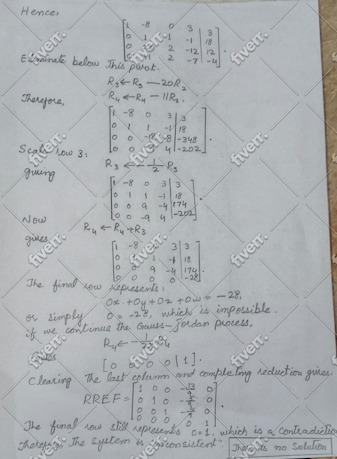 Hence,
[1 -8 0 3 | 3
0 1 1 -1 | 18
2 -12 | 12
2 -7 | -4].
Eliminate below this pivot.
R₃ ← R₃ - 20R₂
R₄ ← R₄ - 11R₂.
Therefore,
[1 -8 0 3 | 3
0 1 1 -1 | 18
0 0 -18 8 | -348
4 | -202].
Scale row 3:
R₃ ← -1/2 R₃
giving
[1 -8 0 3 | 3
0 1 1 -1 | 18
0 0 9 -4 | 174
0 0 -9 4 | -202].
Now
R₄ ← R₄ + R₃
gives
[1 -8 3 | 3
0 1 1 -1 | 18
0 0 9 -4 | 174
0 0 0 | -28].
The final row represents:
0x + 0y + 0z + 0w = -28,
or simply 0 = -28, which is impossible.
if we continue the Gauss-Jordan process,
R₄ ←
[0 0 0 0 | 1].
Clearing the last column and completing reduction gives.
RREF = [1 0 0 0
0 1 0 0
0 0 1 0
0 0 0 1].
The final row still represents 0=1, which is a contradiction
Therefore the system is inconsistent. There is no solution
fiverr.
fiverr.
fiverr.
fiverr.
fiverr.
fiverr.
fiverr.
fiverr.
fiverr.
fiverr.
fiverr.
fiverr.